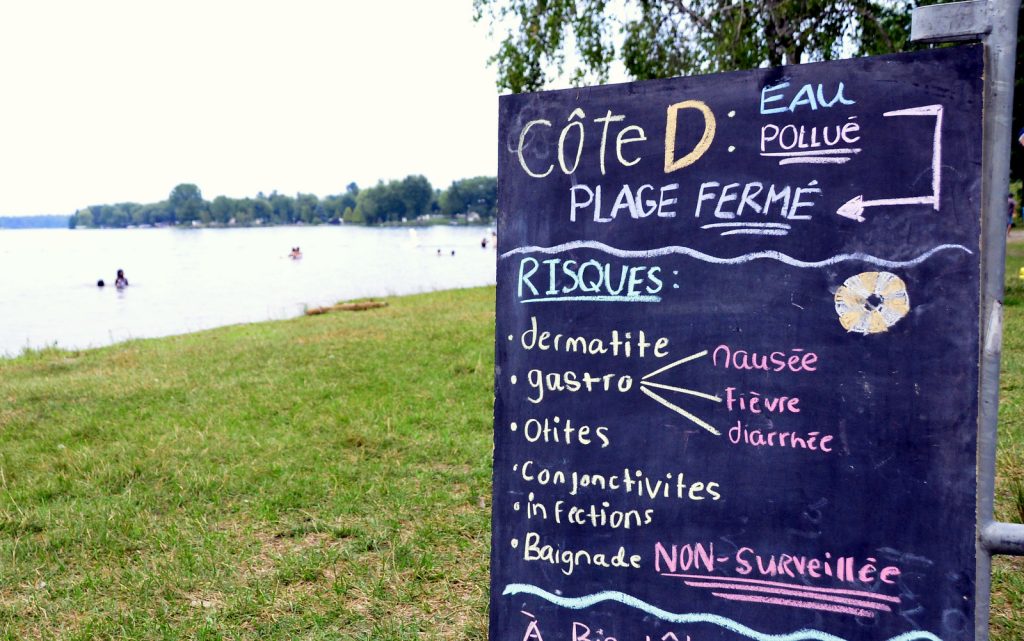 CÔTE D: EAU
POLLUÉ
PLAGE FERMÉ
RISQUES:
• dermatite
• gastro nausée
fièvre
diarrhée
• Otites
• Conjonctivites
• infections
• Baignade NON-SURVEILLÉE
À Bientôt